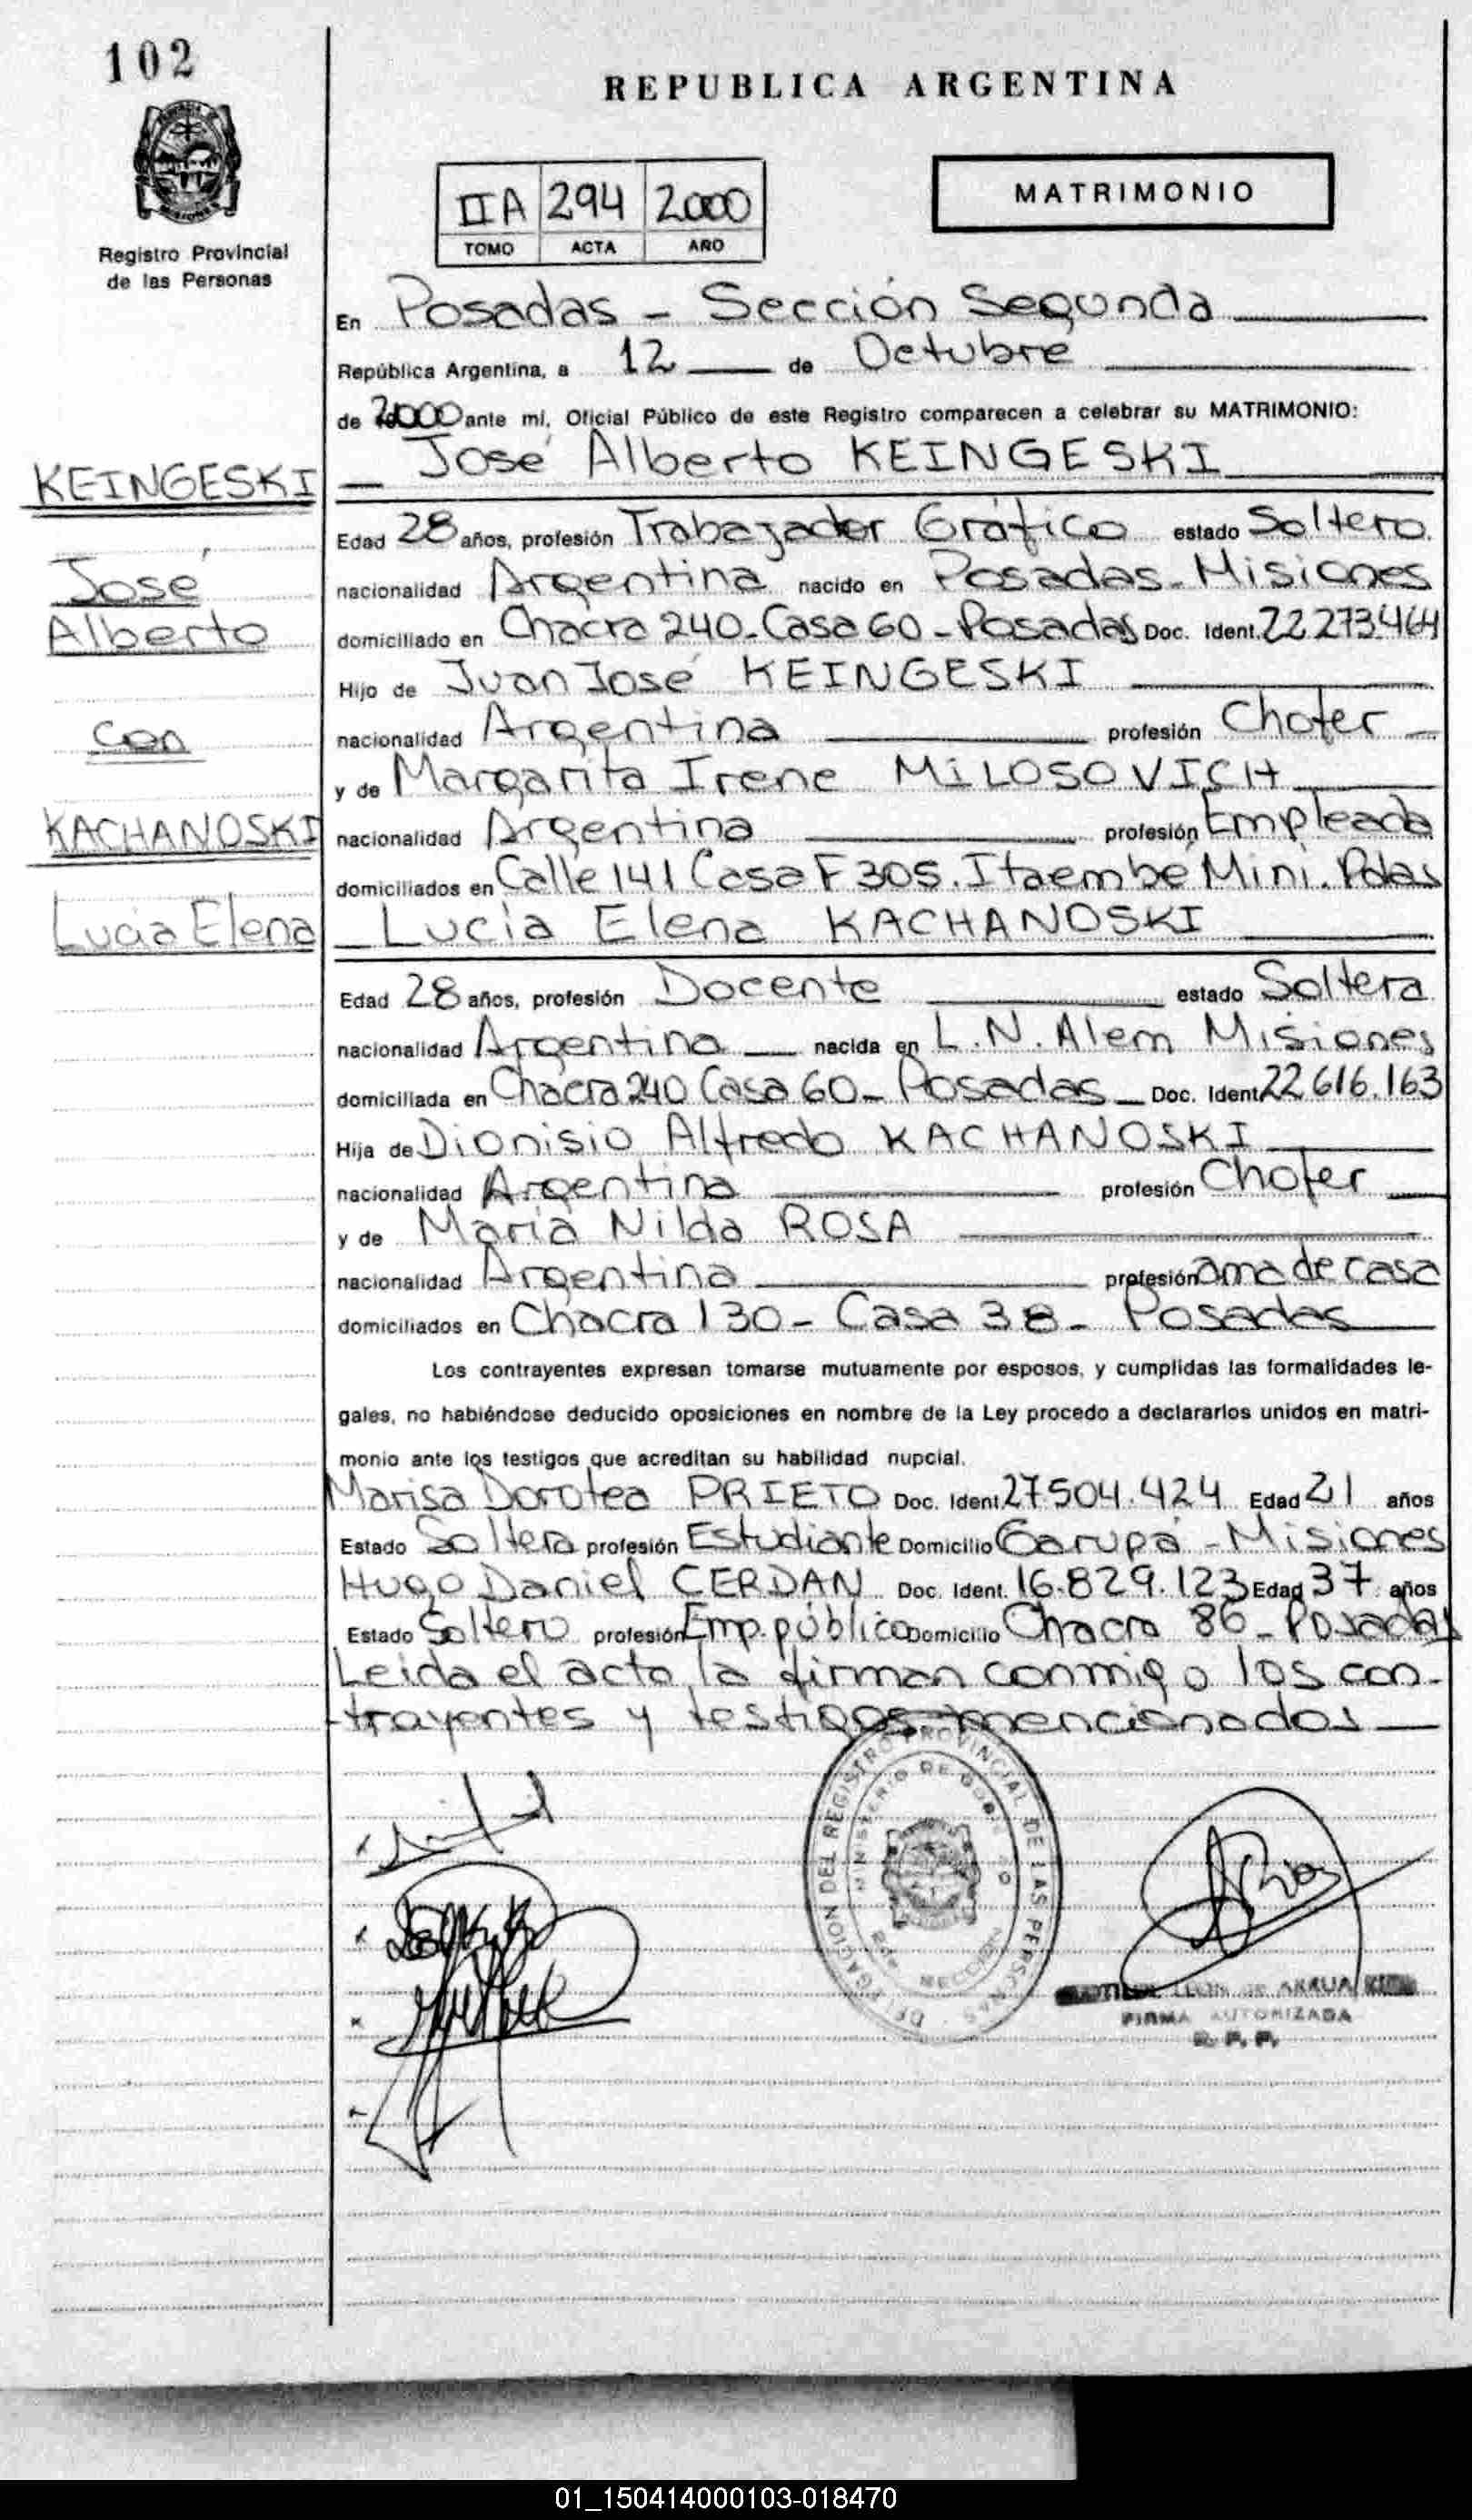 102
REPUBLICA ARGENTINA
Registro Provincial
de las Personas
IIA 294 2000
TOMO ACTA AÑO
MATRIMONIO
En Posadas - Sección Segunda
República Argentina, a 12 de Octubre
de 2000 ante mí, Oficial Público de este Registro comparecen a celebrar su MATRIMONIO:
José Alberto KEINGESKI
KEINGESKI
José
Alberto
con
KACHANOSKI
Lucia Elena
Edad 28 años, profesión Trabajador Gráfico estado Soltero.
nacionalidad Argentina nacido en Posadas - Misiones
domiciliado en Chacra 240 - Casa 60 - Posadas Doc. Ident. 22.273.464
Hijo de Juan José KEINGESKI
nacionalidad Argentina profesión Chofer
y de Margarita Irene MiLOSOVICH
nacionalidad Argentina profesión Empleada
domiciliados en Calle 141 Casa F 305. Itaembé Mini. Pdas
Lucía Elena KACHANOSKI
Edad 28 años, profesión Docente estado Soltera
nacionalidad Argentina nacida en L.N. Alem Misiones
domiciliada en Chacra 240 Casa 60 - Posadas Doc. Ident. 22.616.163
Hija de Dionisio Alfredo KACHANOSKI
nacionalidad Argentina profesión Chofer
y de María Nilda ROSA
nacionalidad Argentina profesión ama de casa
domiciliados en Chacra 130 - Casa 38 - Posadas
Los contrayentes expresan tomarse mutuamente por esposos, y cumplidas las formalidades le-
gales, no habiéndose deducido oposiciones en nombre de la Ley procedo a declararlos unidos en matri-
monio ante los testigos que acreditan su habilidad nupcial.
Marisa Dorotea PRIETO Doc. Ident. 27.504.424 Edad 21 años
Estado Soltera profesión Estudiante Domicilio Garupá - Misiones
Hugo Daniel CERDAN Doc. Ident. 16.829.123 Edad 37 años
Estado Soltero profesión Emp. público Domicilio Chacra 86 - Posadas
Leída el acta, la firman conmigo los con-
trayentes y testigos mencionados
DELEGACION DEL REGISTRO PROVINCIAL DE LAS PERSONAS
MINISTERIO DE GOBIERNO
2da SECCION
FIRMA AUTORIZADA
R. P. P.
01_150414000103-018470